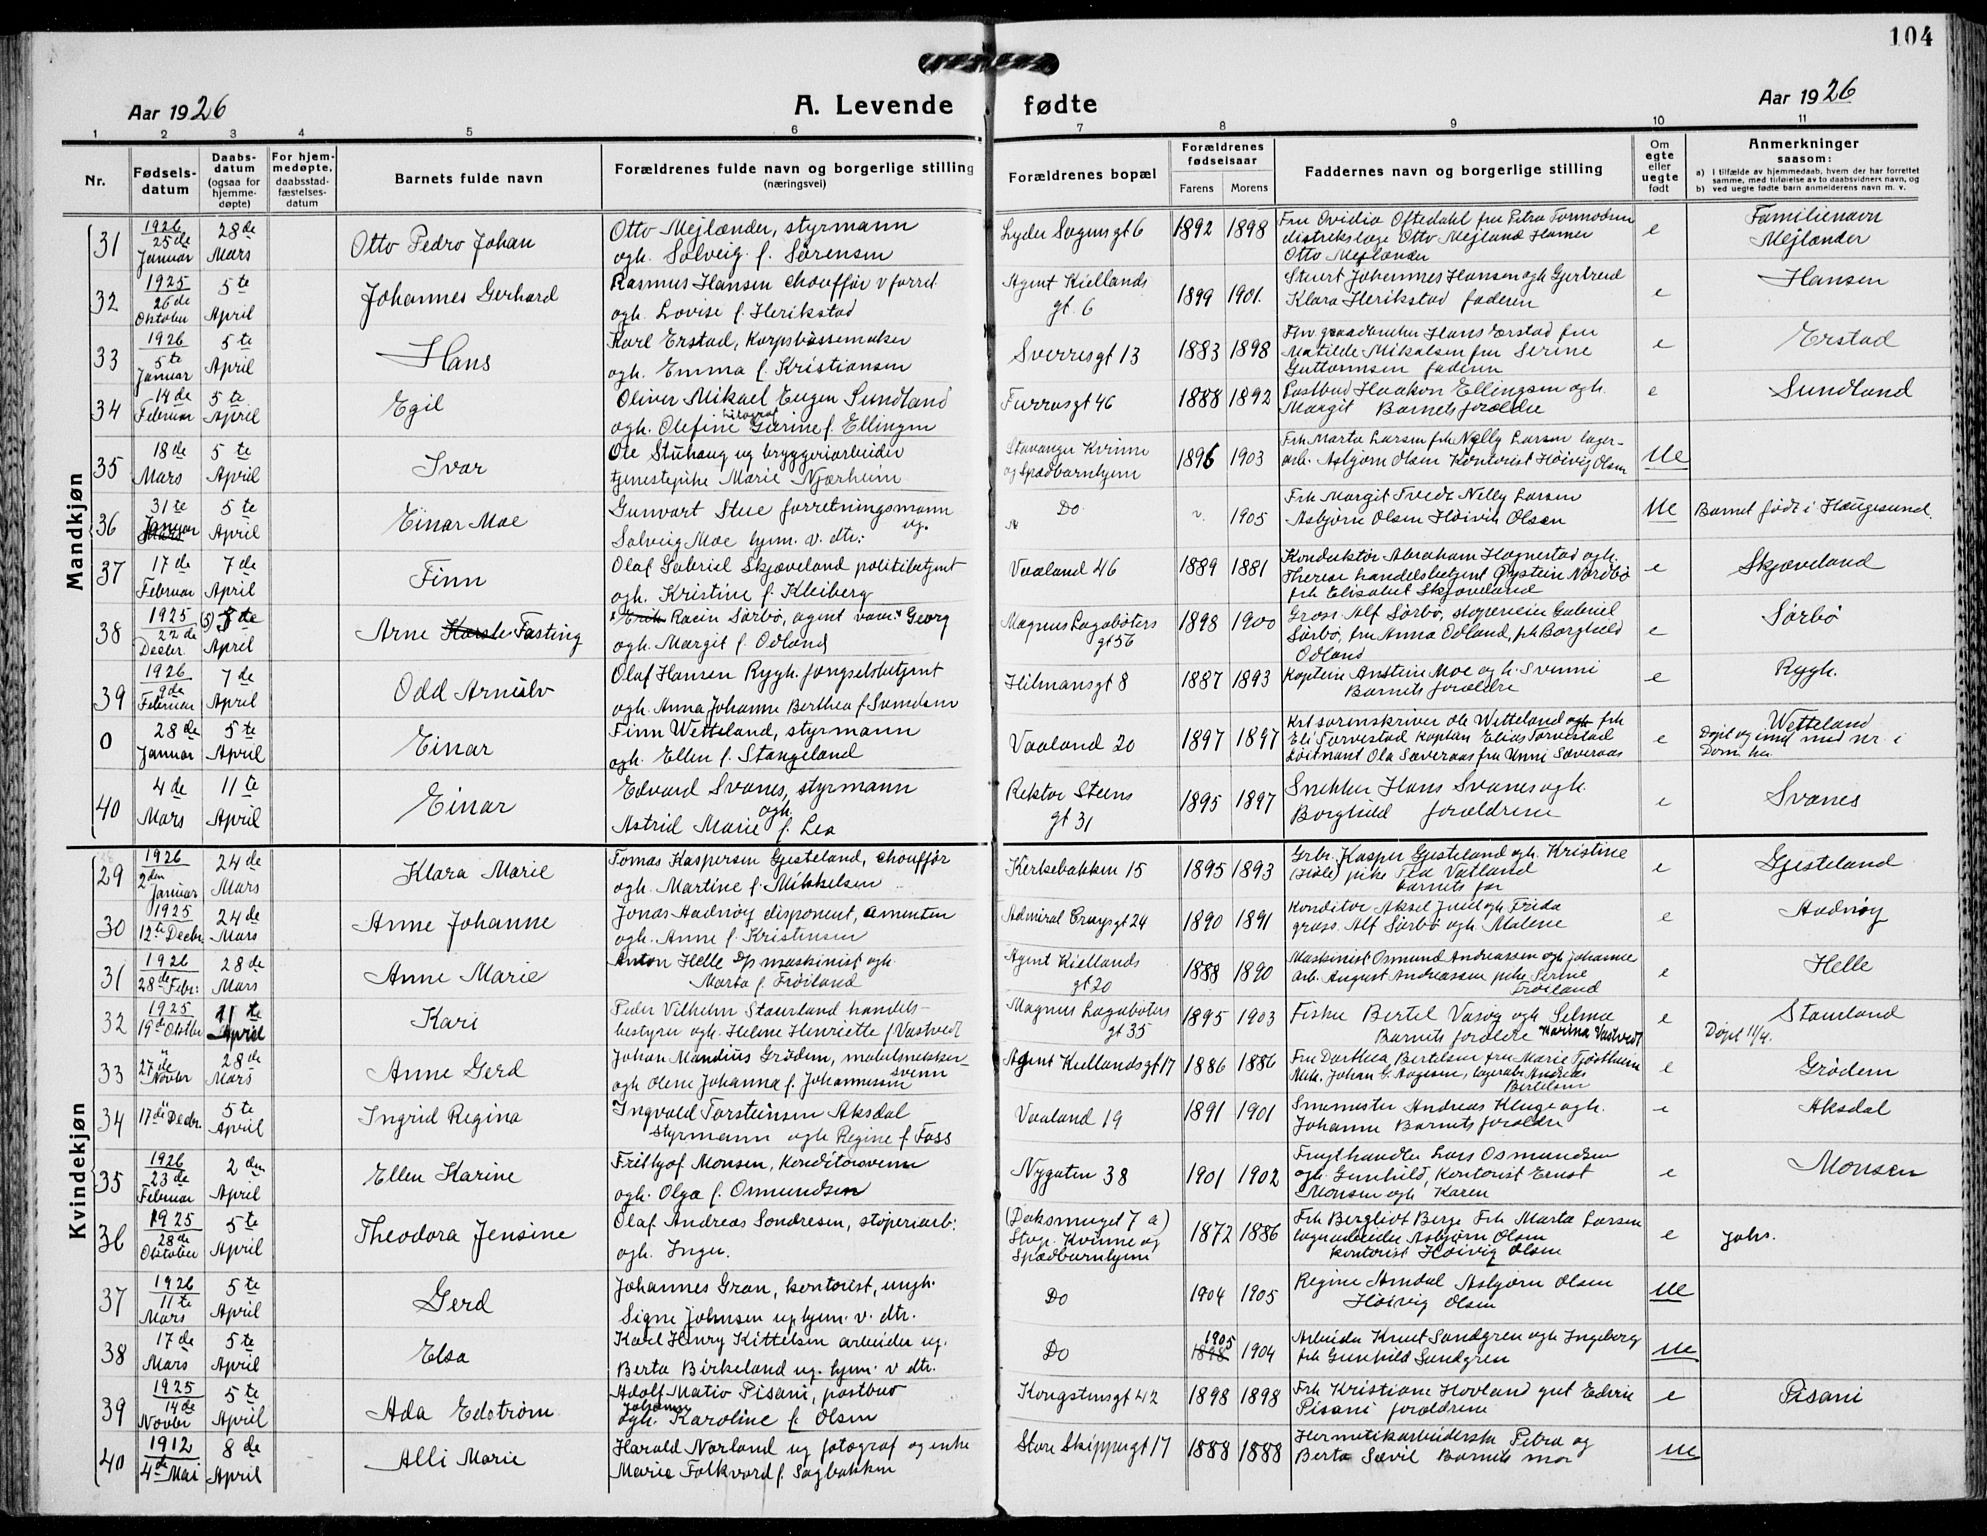 104
Aar 1926
A. Levende fødte
Aar 1926
1 2 3 4 5 6 7 8 9 10 11
Nr.
Fødsels-
datum
Daabs-
datum
(ogsaa for
hjemme-
døpte)
For hjem-
medøpte,
daabsstad-
fæstelses-
datum
Barnets fulde navn
Forældrenes fulde navn og borgerlige stilling
(næringsvei)
Forældrenes bopæl
Forældrenes
fødselsaar
Farens Morens
Faddernes navn og borgerlige stilling
Om
egte
eller
uegte
født
Anmerkninger
saasom:
a) I tilfælde av hjemmedaab, hvem der har forrettet
samme, med tilføielse av to daabsvidners navn, og
b) ved uegte fødte barn anmelderens navn m. v.
Mandkjøn
31 1926 25de Januar 28de Mars Otto Pedro Johan
Otto Mejlænder, styrmann
ogh. Solveig f. Sørensen
Lyder Sagens gt 6 1892 1898
Fru Ovidia Oftedahl fru Petra
distriktslæge Otto Mejlænd Hamer
Otto Mejlænder
e Familienavn
Mejlænder
32 1925 26de Oktober 5te April Johannes Gerhard
Rasmus Hansen chouffør
ogh. Lovise f. Herikstad
Agent Kiellands
gt. 6 1899 1901.
Johannes Hansen ogh Gjertrud
Klara Herikstad faderen
e Hansen
33 1926 5te Januar 5te April Hans
Karl Erstad, Korpsbøssemaker
ogh. Emma f. Kristiansen
Sverresgt 13 1883 1898
Hans Erstad fru
Matilde Mikalsen fru Serine
Guttormsen faderen
e Erstad
34 14de Februar 5te April Egil
Oliver Mikael Eugen Sundland
ogh. Olefine Gurine f. Ellingsen
Furrasgt 46 1888 1892
Postbud Haakon Ellingsen ogh.
Margit Barnets forældre
e Sundland
35 18de Mars 5te April Ivar
Ole Stuhaug ug bryggeriarbeider
tjenestepike Marie Njærheim
Stavanger Kvinne
og Spædbarnhjem 1896 1903
Frk Marta Larsen frk Nelly Larsen lager-
arb. Asbjørn Olsen Kontorist Høivig Olsen
ue
36 31te Januar Mars 5te April Einar Moe
Gunvart Stue forretningsmann
og.
Solveig Moe hjem. v. dtr:
Do 1905
Frk Margit Tvedt Nelly Larsen
Asbjørn Olsen Høivik Olsen
ue Barnet født i Haugesund.
37 17de Februar 7de April Finn
Olaf Gabriel Skjæveland politibetjent
ogh. Kristine f. Kleiberg
Vaaland 46 1889 1881
Konduktør Abraham Hognestad ogh.
Therese handelsbetjent Øystein Nordbø
frk Elisabet Skjæveland
e Skjæveland
38 1925 22de Decbr April Arne Fasting
Racin Sørbø, agent Georg
ogh. Margit f. Odland
Magnus Lagabøters
gt 56 1898 1900
Gross. Alf Sørbø, støperieier Gabriel
Sørbø, fru Anna Odland, frk Borghild
Odland
e Sørbø
39 1926 9de Februar 7de April Odd Arnulv
Olaf Hansen Rygh. fængselsbetjent
ogh. Anna Johanne Berthea f
Hilmansgt 8 1887 1893
Kaptein Anstein Moe ogh. Svenni
Barnets forældre
e Rygh.
0 28de Januar 5te April Einar
Finn Wetteland, styrmann
ogh. Ellen f. Stangeland
Vaaland 20 1897 1897
sorenskriver Ole Wetteland ogh frk
Eli Torvestad Kaptein Elias Torvestad
Løitnant Ola Sæveraas fru Unni Sæveraas
e Wetteland
Døpt og innf med nr. i
Dom
40 4de Mars 11te April Einar
Edvard Svanes, styrmann
ogh.
Astrid Marie f. Lea
Rektor Steens
gt 31 1895 1897
Snekker Hans Svanes ogh.
Borghild forældrene
e Svanes
Kvindekjøn
29 1926 2den Januar 24de Mars Klara Marie
Tomas Kaspersen Gjesteland, chouffør
ogh. Martine f. Mikkelsen
Kirkebakken 15 1895 1893
Grbr. Kasper Gjesteland ogh. Kristine
pike Tea Vatland
barnets far
e Gjesteland
30 1925 12te Decbr. 24de Mars Anne Johanne
Jonas Aadnøy disponent,
ogh. Anne f. Kristensen
Admiral Cruysgt 24 1890 1891
Konditor Aksel Juul ogh. Frida
gross. Alf Sørbø ogh. Malene
e Aadnøy
31 1926 28de Febr: 28de Mars Anne Marie
Anton Helle maskinist ogh.
Marta f. Frøiland
Agent Kiellands
gt 20 1888 1890
Maskinist Osmund Andreassen ogh Johanne
arb. August Andreassen pike Serine
Frøiland
e Helle
32 1925 19de Oktbr 11te April Kari
Peder Vilhelm Staurland handels-
bestyrer ogh. Helene Henriette f Vastvedt
Magnus Lagabøters
gt 35 1895 1903
Fisker Bertel Vasøy ogh Selma
Barnets forældre Marina Vastvedt
e Staurland
Døpt 11/4.
33 27de Novbr 28de Mars Anne Gerd
Johan Mandius Grødem, møbelsnekker-
svenn
ogh Olene Johanna f. Johannesen
Agent Kiellandsgt 17 1886 1886
Fru Dorthea Bertelsen fru Marie Tjøstheim
Mek. Johan G. Aagesen, lagerarb Andreas
Bertelsen
e Grødem
34 17de Decbr. 5te April Ingrid Regina
Ingvald Torsteinsen Aksdal
styrmann ogh Regine f Foss
Vaaland 19 1891 1901
Smemester Andreas Kluge ogh.
Johanne Barnets forældre
e Aksdal
35 1926 23de Februar 2den April Ellen Karine
Frithjof Monsen, Konditorsvenn
ogh. Olga f. Osmundsen
Nygaten 38 1901 1902
Frugthandler Lars Osmundsen
ogh. Gunhild, Kontorist Ernst
Monsen ogh. Karen
e Monsen
36 1925 28de Oktober 5te April Theodora Jensine
Olaf Andreas Sondresen, støperiarb:
ogh. Inger.
(Doksmuget 7 a)
Stvg. Kvinne og
Spædbarnhjem 1872 1886
Frk Bergliot Berge Frk Marta Larsen
lagerarbeider Asbjørn Olsen
kontorist Høivig Olsen
e Johs.
37 1926 11te Mars 5te April Gerd
Johannes Gran, kontorist, ungk.
Signe Johnsen ug hjem. v. dtr.
Do 1904 1905
Regine Amdal Asbjørn Olsen
Høivig Olsen
ue
38 17de Mars 5te April Elsa
Karl Henry Kittelsen arbeider ug.
Berta Birkeland ug. hjem. v dtr.
Do 1905 1898 1904
Arbeider Knut Sandgren ogh Ingeborg
frk Gunhild Sandgren
ue
39 1925 14de Novbr 5te April Ada Edstrøm
Adolf Matio Pisani, postbud
Johanne
ogh. Karoline f. Olsen
Kongstensgt 42 1898 1898
Frk Kristiane Hovland gut Edvin
Pisani forældrene
e Pisani
40 1912 4de Mai 8de April Alli Marie
Harald Norland ug fotograf og enke
Marie Folkvord f. Sagbakken
Store Skippergt 17 1888 1888
Hermetikarbeiderske Petra og
Berta Sævil Barnets mor
ue